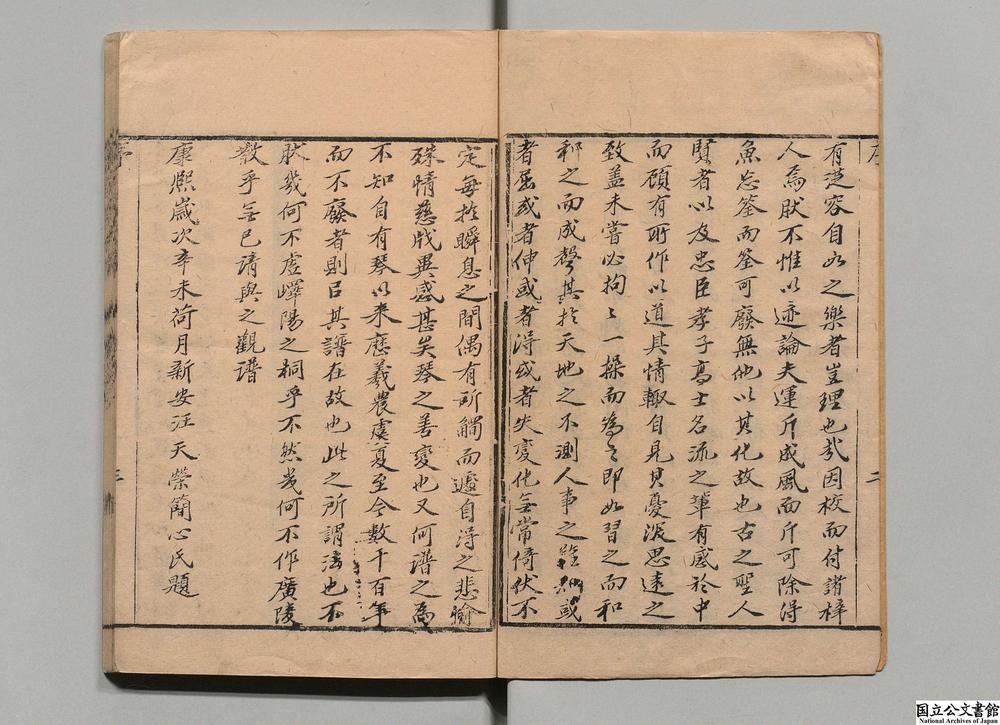 序
有從容自如之樂者豈理也哉因校而付諸梓
人焉肰不惟以迹論夫運斤成風而斤可除得
魚忘筌而筌可廢無他以其化故也古之聖人
賢者以及忠臣孝子高士名流之輩有感於中
而頎有所作以道其情輙自見其憂深思遠之
致盖未嘗必拘〻一操而為之即如習之而和
和之而成聲其扵天地之不測人事之難知或
者屈或者伸或者得或者失變化無常倚伏不
二
定每扵瞬息之間偶有所觸而遽自得之悲愉
殊情慈戕異感甚矣琴之善變也又何譜之為
不知自有琴以来歷羲農虞夏至今數千百年
而不廢者則㠯其譜在故也此之所謂法也不
肰幾何不虛嶧陽之桐乎不然幾何不作廣陵
散乎無已請與之觀譜
康熙歲次辛未荷月新安汪天榮簡心氏題
序
三
国立公文書館
National Archives of Japan